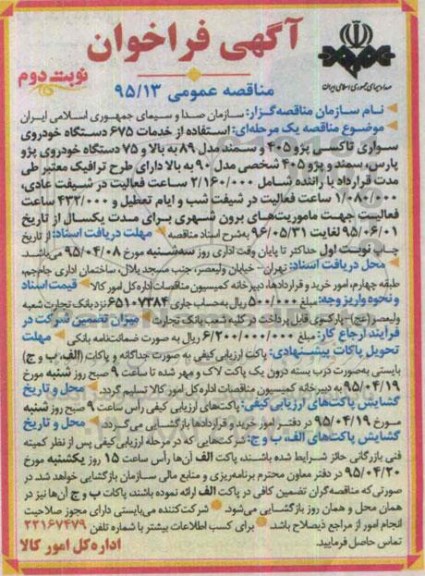 آگهی فراخوان
نوبت دوم
صدا و سیمای جمهوری اسلامی ایران
مناقصه عمومی ۹۵/۱۳
نام سازمان مناقصه‌گزار: سازمان صدا و سیمای جمهوری اسلامی ایران
موضوع مناقصه یک مرحله‌ای: استفاده از خدمات ۶۷۵ دستگاه خودروی
سواری تاکسی پژو ۴۰۵ و سمند مدل ۸۹ به بالا و ۷۵ دستگاه خودروی پژو
پارس، سمند و پژو ۴۰۵ شخصی مدل ۹۰ به بالا دارای طرح ترافیک معتبر طی
مدت قرارداد با راننده شامل ۲/۱۶۰/۰۰۰ ساعت فعالیت در شیفت عادی،
۱/۰۸۰/۰۰۰ ساعت فعالیت در شیفت شب و ایام تعطیل و ۴۳۲/۰۰۰ ساعت
فعالیت جهت ماموریت‌های برون شهری برای مدت یکسال از تاریخ
۹۵/۰۶/۰۱ لغایت ۹۶/۰۵/۳۱ به‌شرح اسناد مناقصه مهلت دریافت اسناد: از تاریخ
چاپ نوبت اول حداکثر تا پایان وقت اداری روز سه‌شنبه مورخ ۹۵/۰۴/۰۸ می‌باشد.
محل دریافت اسناد: تهران، خیابان ولیعصر، جنب مسجد بلال، ساختمان اداری جام‌جم،
طبقه چهارم، امور خرید و قراردادها، دبیرخانه کمیسیون مناقصات اداره کل امور کالا قیمت اسناد
و نحوه واریز وجه: مبلغ ۵۰۰/۰۰۰ ریال به حساب جاری ۶۵۱۰۷۳۸۴ نزد بانک تجارت شعبه
ولیعصر (عج) - پارک‌وی قابل پرداخت در کلیه شعب بانک تجارت میزان تضمین شرکت در
فرآیند ارجاع کار: مبلغ ۶/۲۰۰/۰۰۰/۰۰۰ ریال به صورت ضمانت‌نامه بانکی مهلت
تحویل پاکات پیشنهادی: پاکت ارزیابی کیفی به صورت جداگانه و پاکات (الف، ب و ج)
بایستی به‌صورت درب بسته درون یک پاکت لاک و مهر شده تا ساعت ۹ صبح روز شنبه مورخ
۹۵/۰۴/۱۹ به دبیرخانه کمیسیون مناقصات اداره کل امور کالا تسلیم گردد. محل و تاریخ
گشایش پاکت‌های ارزیابی کیفی: پاکت‌های ارزیابی کیفی رأس ساعت ۹ صبح روز شنبه
مورخ ۹۵/۰۴/۱۹ در دفتر امور خرید و قراردادها بازگشایی می‌گردد. محل و تاریخ
گشایش پاکت‌های الف، ب و ج: شرکت‌هایی که در مرحله ارزیابی کیفی پس از نظر کمیته
فنی بازرگانی حائز شرایط شده باشند، پاکت الف آن‌ها رأس ساعت ۱۵ روز یکشنبه مورخ
۹۵/۰۴/۲۰ در دفتر معاون محترم برنامه‌ریزی و منابع مالی سازمان بازگشایی خواهد شد. در
صورتی که مناقصه‌گران تضمین کافی در پاکت الف ارائه نموده باشند، پاکات ب و ج آن‌ها نیز در
همان محل و همان روز بازگشایی می‌شود. شرکت کننده می‌بایستی دارای مجوز صلاحیت
انجام امور از مراجع ذیصلاح باشد. برای کسب اطلاعات بیشتر با شماره تلفن ۲۲۱۶۷۴۷۹
تماس حاصل فرمایید.
اداره کل امور کالا